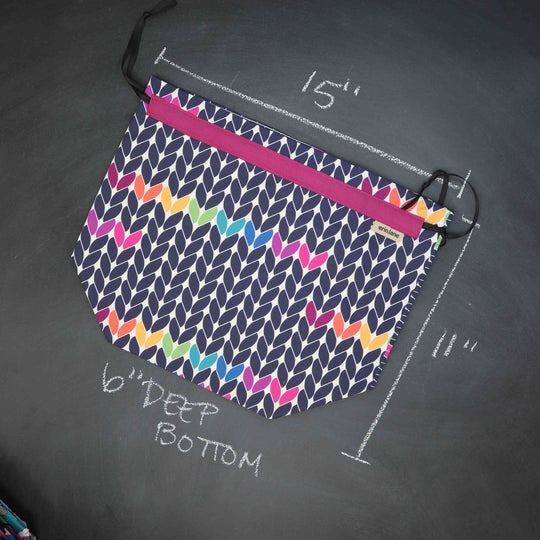 15"
erin.lane
11"
6" DEEP
BOTTOM